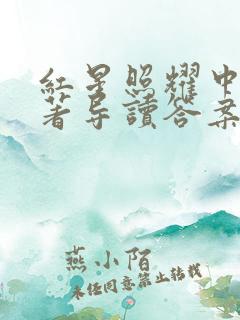 紅星照耀中
著导讀答案
燕小陌
未经同意禁止转载